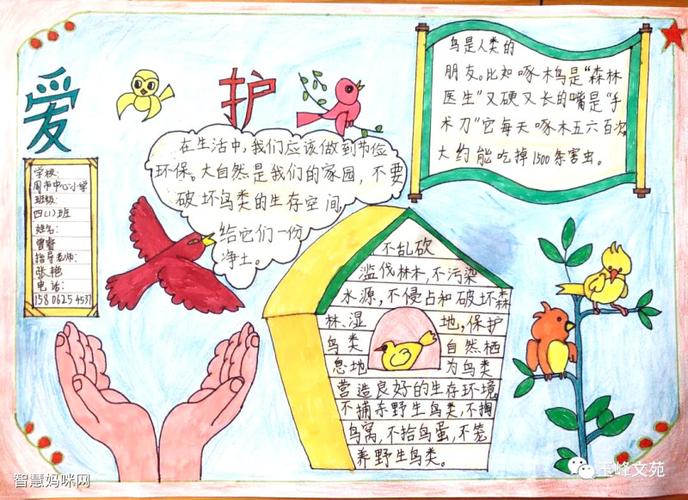 爱护
鸟是人类的
朋友。比如啄木鸟是“森林
医生”又硬又长的嘴是“手
术刀”它每天啄木五六百次
大约能吃掉1500条害虫。
在生活中,我们应该做到节俭
环保。大自然是我们的家园,不要
破坏鸟类的生存空间
给它们一份
净土。
学校:
周市中心小学
班级:
四(1)班
姓名:
指导老师:
张艳
电话:
不乱砍
滥伐林木,不污染
水源,不侵占和破坏森
林、湿地,保护
鸟类自然栖
息地为鸟类
营造良好的生存环境
不捕杀野生鸟类,不掏
鸟窝,不拾鸟蛋,不笼
养野生鸟类。
智慧妈咪网
玉峰文苑